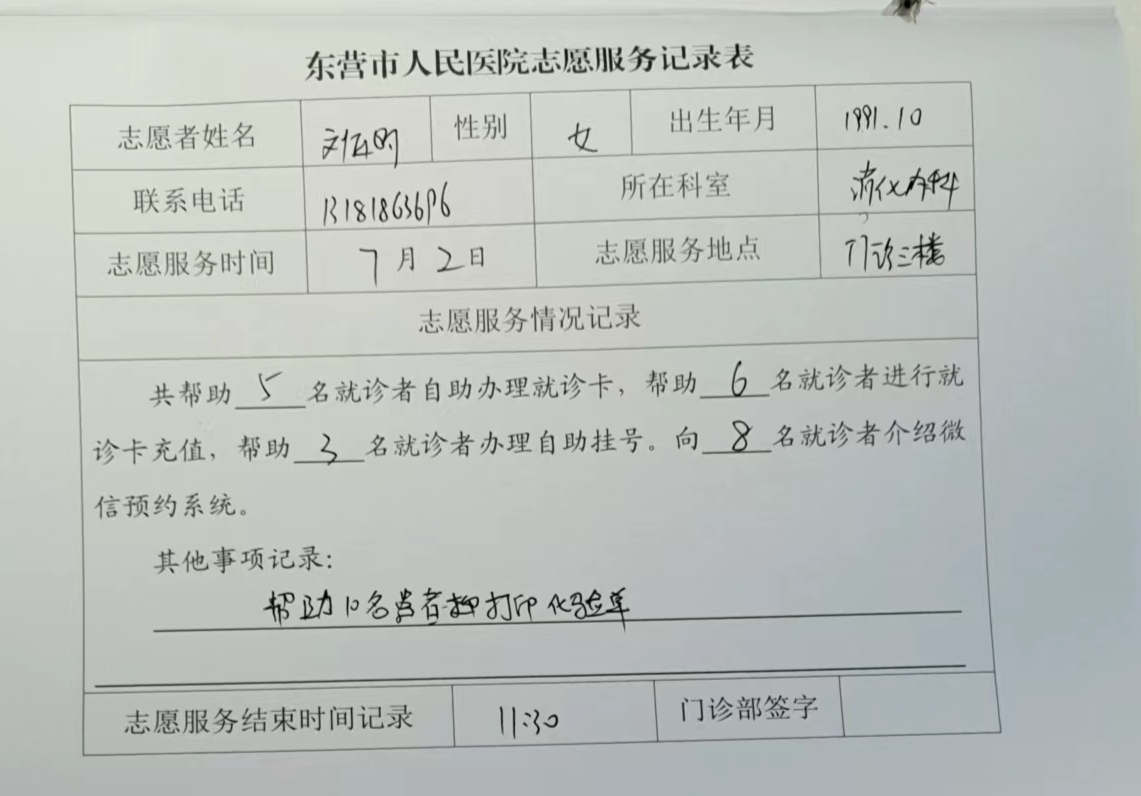 东营市人民医院志愿服务记录表
志愿者姓名 性别 女 出生年月 1991.10
联系电话 所在科室 消化内科
志愿服务时间 7月2日 志愿服务地点 门诊三楼
志愿服务情况记录
共帮助 5 名就诊者自助办理就诊卡，帮助 6 名就诊者进行就
诊卡充值，帮助 3 名就诊者办理自助挂号。向 8 名就诊者介绍微
信预约系统。
其他事项记录：
帮助10名患者 打印化验单
志愿服务结束时间记录 11:30 门诊部签字